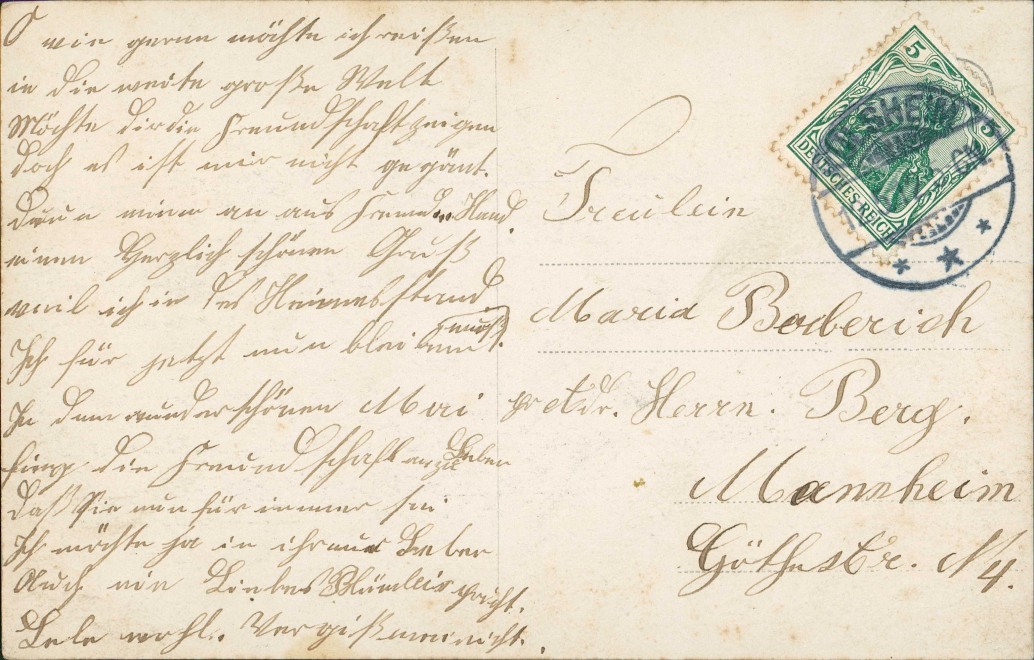 O wie gerne möchte ich reißen
in die weite große Welt
Möchte dir die Freundschaft zeigen
Doch es ist mir nicht gegönt.
Drum nimm an aus Fremder Hand
einen Herzlich schönen Gruß
weil ich in des Heimes stand
Ich für jetzt nun bleiben muß.
In dem wunderschönen Mai
fing die Freundschaft an zu Leben
Daß Sie nun für immer sei
Ich möchte ja in ihrem Leben
Auch ein Liebes Blümlein
Lebe wohl. Vergißmeinnicht.
Freulein
Maria Boberich
Adr. Herrn. Berg.
Mannheim
Göthestr. N4.
5
5
DEUTSCHES REICH